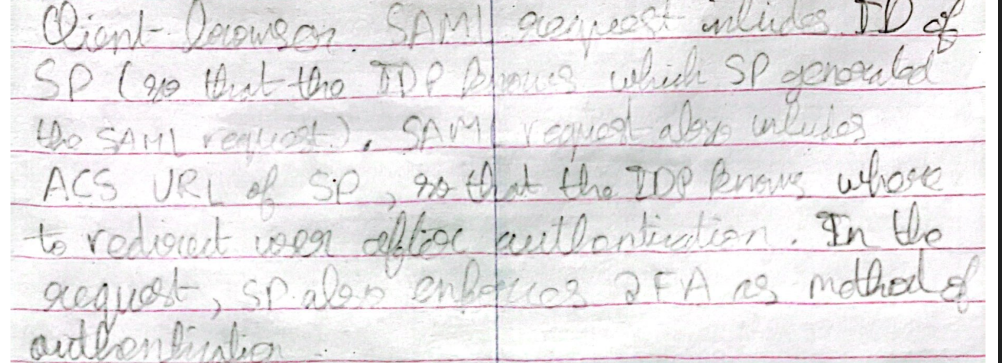 Client browser. SAML request inludes ID of
SP (so that the IDP knows which SP generated
the SAML request). SAML request also inludes
ACS URL of SP, so that the IDP knows where
to redirect user after authentication. In the
request, SP also enforces 2FA as method of
authentication